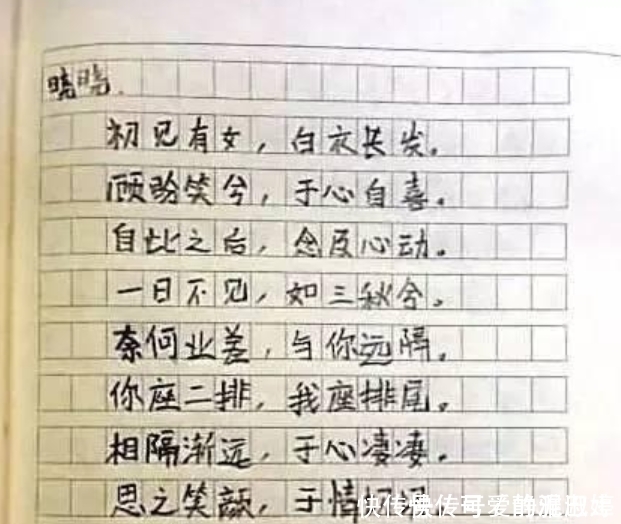 晓晓.
初见有女，白衣长发。
顾盼笑兮，于心自喜。
自此之后，念及心动。
一日不见，如三秋兮。
奈何业差，与你远隔。
你座二排，我座排尾。
相隔渐远，于心凄凄。
思之笑颜，于情
快传